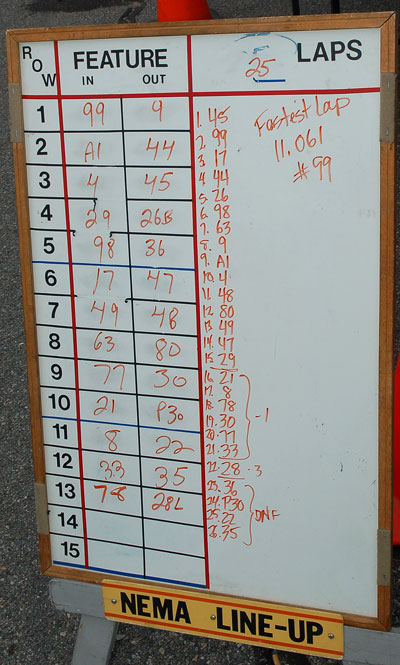 ROW FEATURE 25 LAPS
IN OUT
1 99 9
2 A1 44
3 4 45
4 29 26B
5 98 36
6 17 47
7 49 48
8 63 80
9 77 30
10 21 P30
11 8 22
12 33 35
13 78 28L
14
15
1. 45
2. 99
3. 17
4. 44
5. 26
6. 98
7. 63
8. 9
9. A1
10. 4
11. 48
12. 80
13. 49
14. 47
15. 29
16. 21
17. 8
18. 78
19. 30
20. 77
21. 33
-1
22. 28 - 3
23. 36
24. P30
25. 22
26. 35
DNF
Fastest Lap
11.061
#99
NEMA LINE-UP